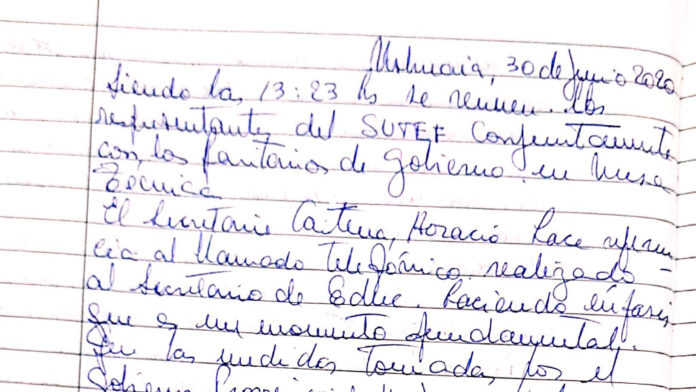 Ushuaia, 30 de Junio 2020
Siendo las 13:23 hs se reunen los
representantes del SUTEF Conjuntamente
con los paritarios de Gobierno en Mesa
Técnica
El Secretario Catena, Horacio hace referen-
cia al llamado telefónico realizado
al Secretario de Educ. haciendo énfasis
que es un momento fundamental.
que las medidas tomadas por el
Gobierno